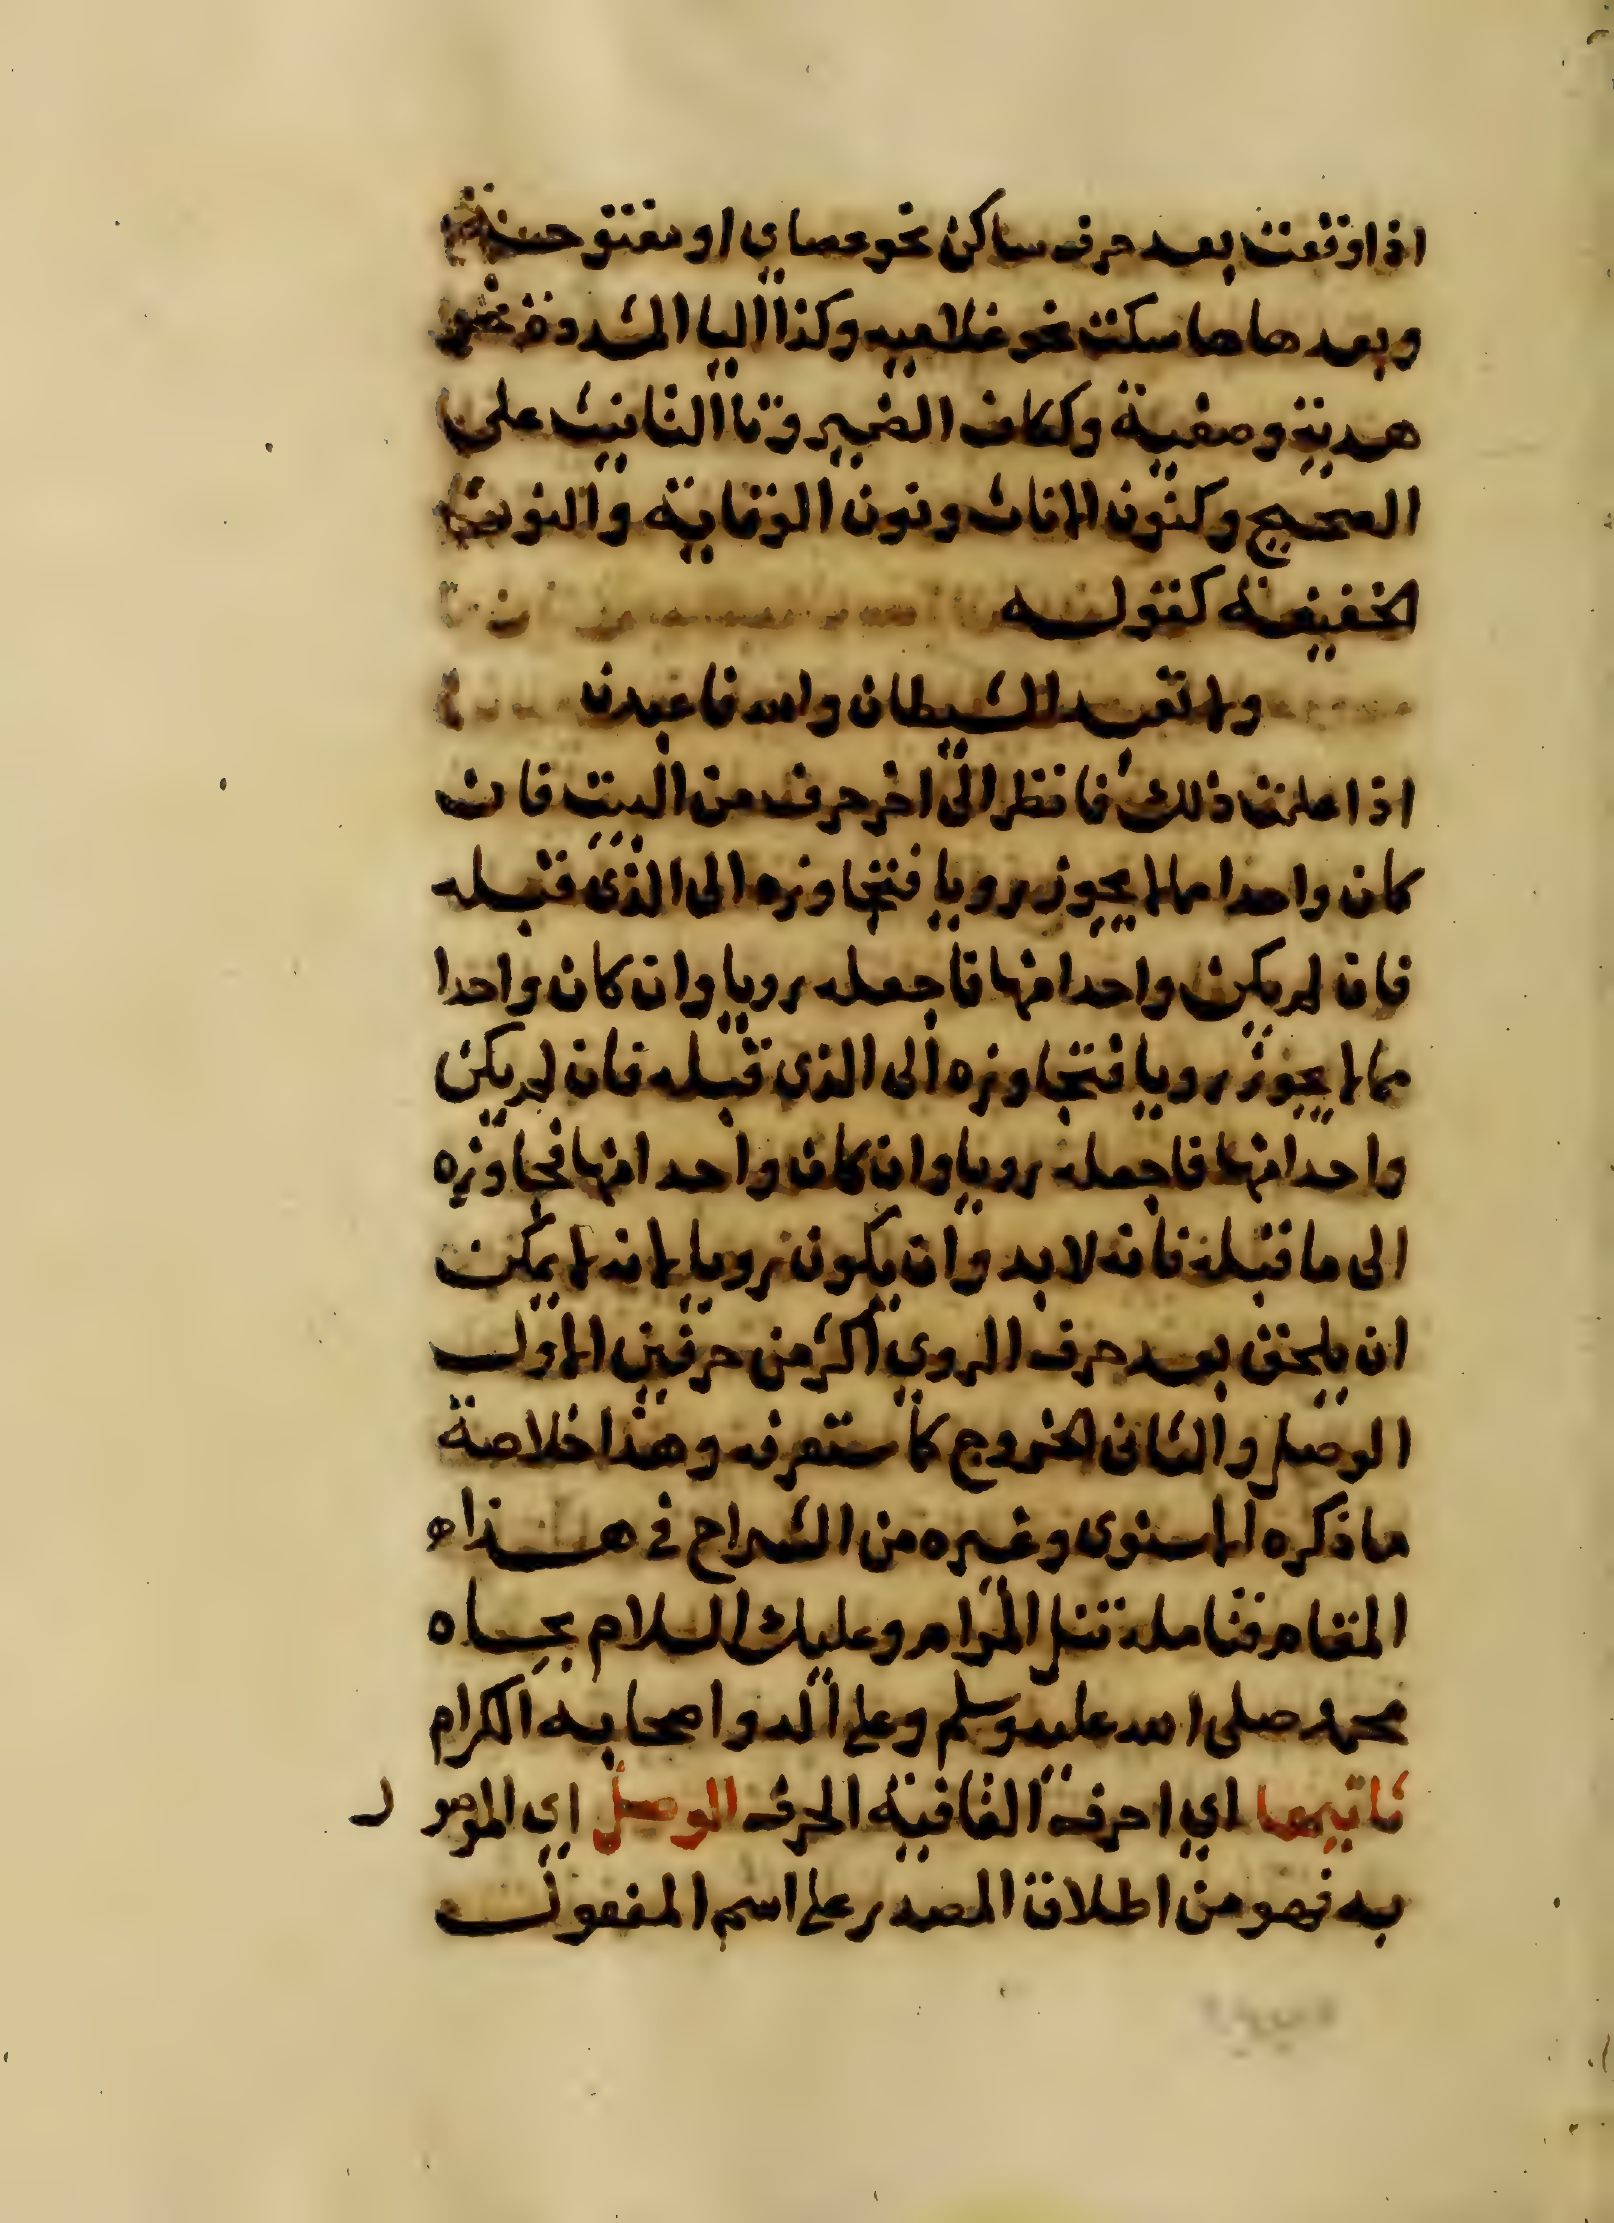 اذا وقعت بعد حرف ساكن نحو عصاي او مفتوحة
وبعدها ها سكت نحو غلاميه وكذا اليا المشددة نحو
هدية وصفية وككاف الضمير وتا التانيث على
الصحيح وكنون الاناث ونون الوقاية والنون
الخفيفة كقوله
ولا تعبد الشيطان والله فاعبدن
اذا علمت ذلك فانظر الى اخر حرف من البيت فان
كان واحدا مما لا يجوز رويا فتجاوزه الى الذي قبله
فان لم يكن واحدا منها فاجعله رويا وان كان واحدا
مما لا يجوز رويا فتجاوزه الى الذي قبله فان لم يكن
واحدا منها فاجعله رويا وان كان واحدا منها فجاوزه
الى ما قبله فانه لا بد وان يكون رويا لانه لا يمكن
ان يلحق بعد حرف الروي اكثر من حرفين الاول
الوصل والثاني الخروج كما ستعرفه وهذا خلاصة
ما ذكره الاسنوى وغيره من الشراح في هذا
المقام فتامله تنل المرام وعليك السلام بجاه
محمد صلى الله عليه وسلم وعلى اله واصحابه الكرام
ثانيها اي احرف القافية الحرف الوصل اي الموصول
به فهو من اطلاق المصدر على اسم المفعول